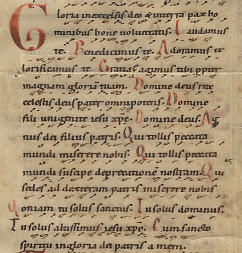 Gloria inexcelsis deo & interra pax ho
minibus bone voluntatis. Laudamus
te. Benedicimus te. Adoramus te.
Glorificamus te. Gratias agimus tibi ppter
magnam gloria tuam. Domine deus rex
celestis deus pater omnipotens. Domine
fili unigenite iesu xpe. Domine deus. Ag
nus dei filius patris. Qui tollis peccata
mundi miserere nobis. Qui tollis peccata
mundi suscipe deprecatione nostram. Qui
sedes ad dexteram patris miserere nobis
Quoniam tu solus sanctus. Tu solus dominus.
Tu solus altissimus iesu xpe. Cum sancto
spiritu in gloria dei patris amen.